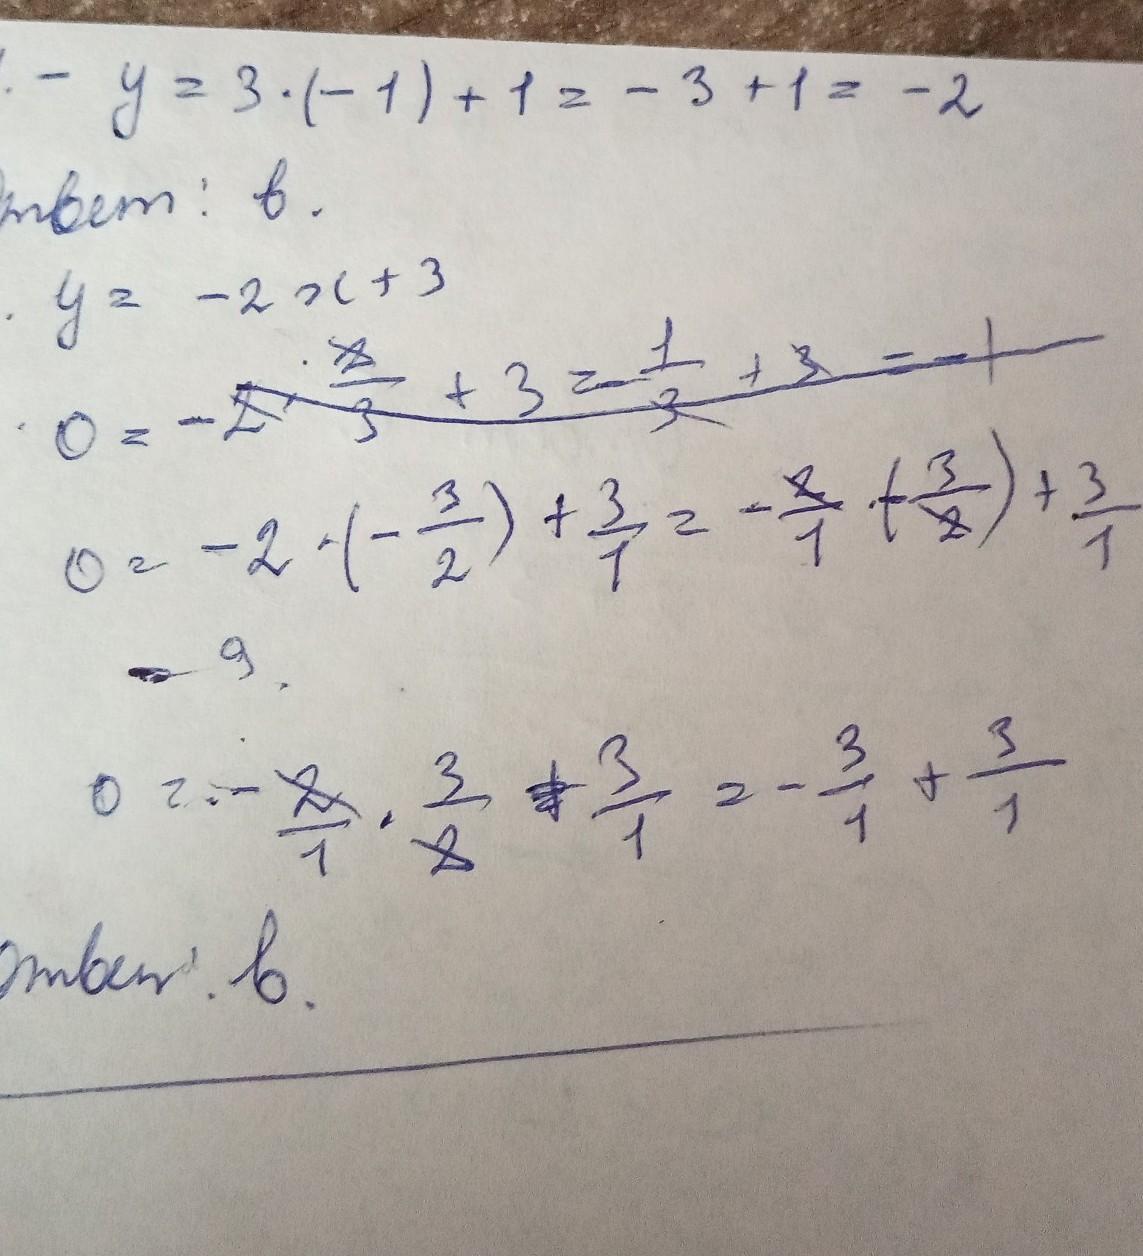 . - y = 3 · (-1) + 1 = -3 + 1 = -2
Ответ: в.
. y = -2x + 3
0 = -2 · 2/3 + 3 = -1/3 + 3 = -1
0 = -2 · (-3/2) + 3/1 = -2/1 · (-3/2) + 3/1
- 9.
0 = -2/1 · 3/2 + 3/1 = -3/1 + 3/1
Ответ: в.